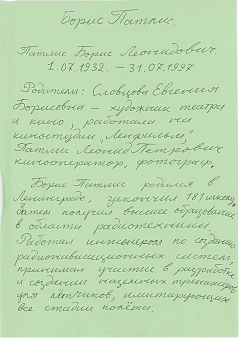 Борис Патлис.
Патлис Борис Леонидович
1.07.1932. – 31.07.1997
Родители: Словцова Евгения
Борисовна – художник театра
и кино, работала на
киностудии „Ленфильм",
Патлис Леонид Петрович
кинооператор, фотограф.
Борис Патлис родился в
Ленинграде, закончил 181 школу,
затем получил высшее образование
в области радиотехники.
Работал инженером по созданию
радионавигационных систем,
принимал участие в разработке
и создании наземных тренажеров
для лётчиков, имитирующих
все стадии полёта.